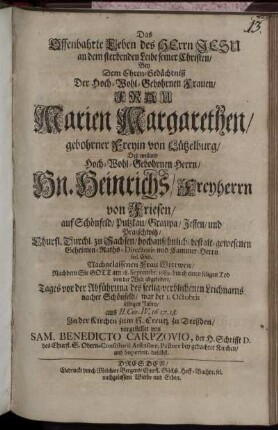 13.
Das
Offenbahrte Leben des HErrn JESU
an dem sterbenden Leibe seiner Christen/
Bey
Dem Ehren-Gedächtnüß
Der Hoch-Wohl-Gebohrnen Frauen/
FRAU
Marien Margarethen/
gebohrner Freyin von Lützelburg/
Des weiland
Hoch-Wohl-Gebohrnen Herrn/
Hn. Heinrichs/ Freyherrn
von Friesen/
auf Schönfeld/ Putzkau/ Graupa/ Jessen/ und
Churfl. Durchl. zu Sachsen/ hochansehnlich-bestalt-gewesenen
Geheimen-Raths-Directoris und Cammer-Herrn
Nachgelassenen Frau Wittwen/
Nachdem Sie GOTT am 18. Septembr. 1689. durch einen seligen Tod
von der Welt abgefodert/
Tages vor der Abführung des seelig-verblichenen Leichnams
nacher Schönfeld/ war der 1. Octobris
selbigen Jahres/
aus II. Cor. IV, 16. 17. 18.
In der Kirchen zum H. Creutz zu Dreßden/
vorgestellet von
SAM. BENEDICTO CARPZOVIO, der H. Schrifft D.
des Churfl. S. Obern-Consistorii Assessore, Pastore bey gedachter Kirchen/
und Superint. daselbst.
DRESDEN/
Gedruckt durch Melchior Bergens/ Churfl. Sächs. Hoff-Buchdr. sel.
nachgelassene Wittwe und Erben.